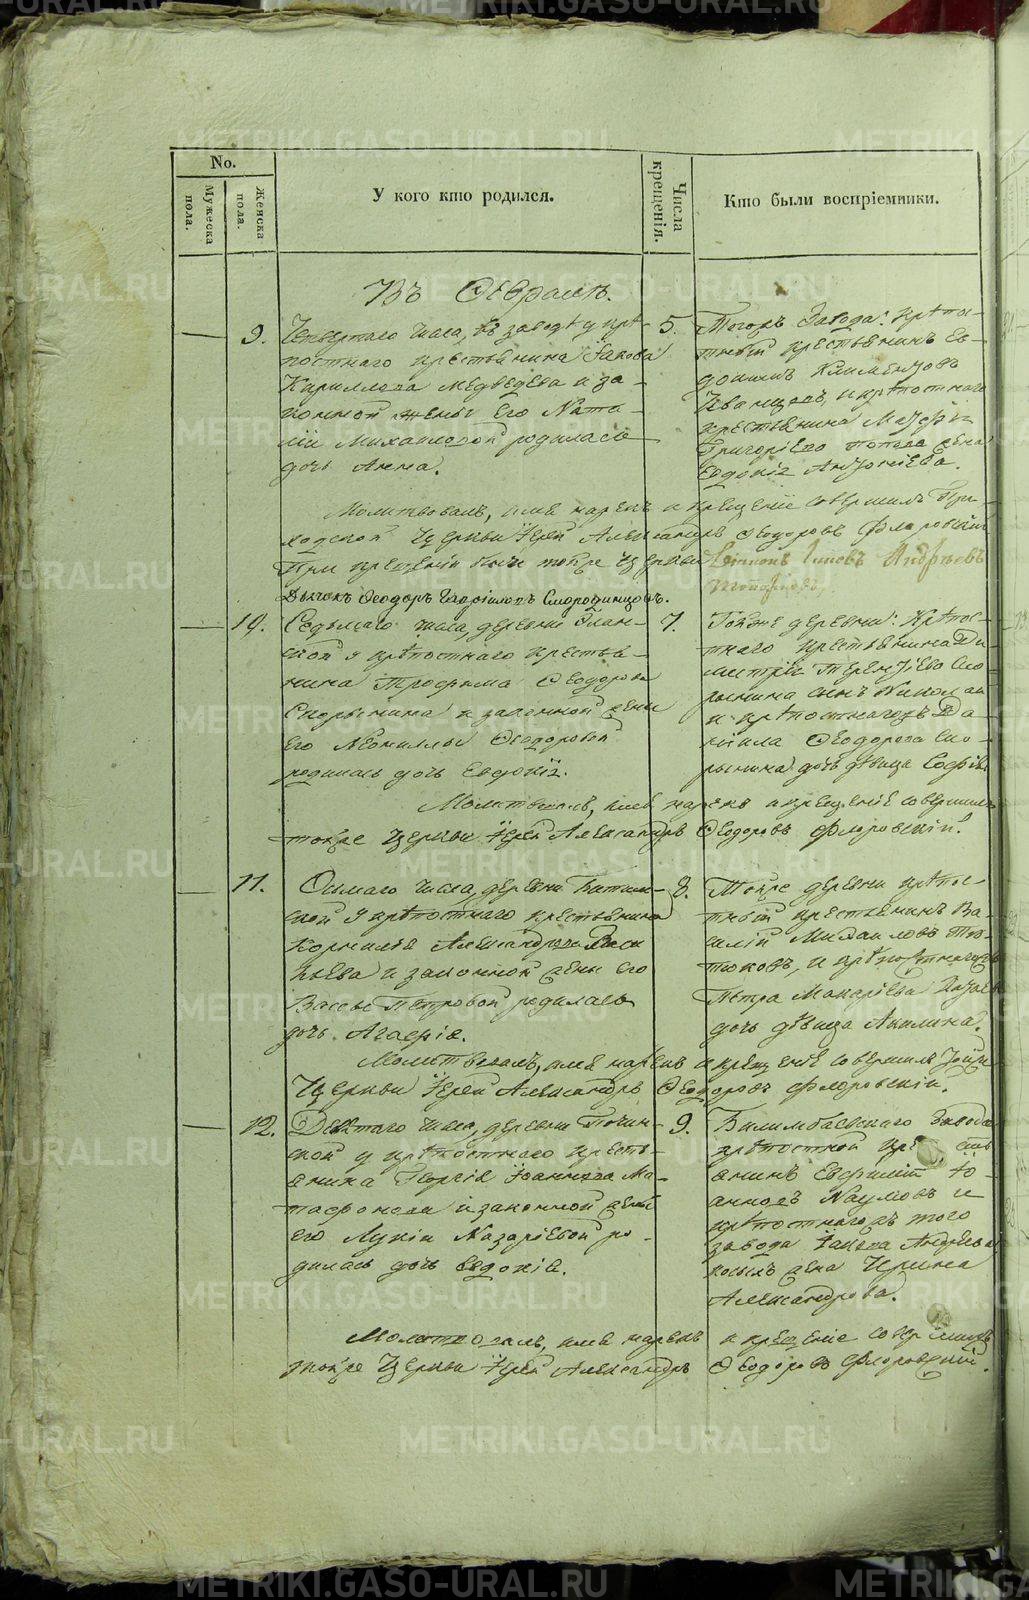 No.
Мужеска пола.
Женска пола.
У кого кто родился.
Числа крещенія.
Кто были воспріемники.
Въ Февралѣ.
9. Четвертаго числа, въ заводѣ у крѣ-
постнаго крестьянина Іакова
Кириллова Медведева и за-
конной жены его Ната-
ліи Михаиловой родилась
дочь Анна.
5. Тогожъ Завода: крѣпо-
стный крестьянинъ Ев-
докимъ Климентовъ
и крѣпостнаго
крестьянина
Григоріева Попова жена
Евдокія Антоніева.
Молитвовалъ, имя нарекъ и крещеніе совершилъ При-
ходской Церкви Іерей Александръ Феодоровъ Флоровскій
При крещеніи былъ тойже Церкви
Дьячокъ Феодоръ Гавріиловъ Смородинцовъ.
10. Седьмаго числа, деревни
ской у крѣпостнаго крестья-
нина Трофима Феодорова
Скорынина и законной жены
его Неониллы Феодоровой
родилась дочь Евдокія.
7. Тойже деревни: Крѣпос-
тнаго крестьянина Ди-
митрія Терентіева Ско-
рынина сынъ Николай
и крѣпостнагожъ Да-
ніила Феодорова Ско-
рынина дочь дѣвица Софія.
Молитвовалъ, имя нарекъ и крещеніе совершилъ
тойже Церкви Іерей Александръ Феодоровъ Флоровскій.
11. Осьмаго числа, деревни
ской у крѣпостнаго крестьянина
Корнилія Александрова Васи
льева и законной жены его
Вассы Петровой родилась
дочь Агафія.
8. Тойже деревни крѣпос-
тный крестьянинъ Ва-
силій Михаиловъ
и крѣпостнагожъ
Петра Макаріева
дочь дѣвица Акилина.
Молитвовалъ, имя нарекъ и крещеніе совершилъ тойже
Церкви Іерей Александръ Феодоровъ Флоровскій.
12. Девятаго числа, деревни Почин-
ской у крѣпостнаго кресть-
янина Георгія Іоаннова Ма-
тафонова и законной жены
его Лукіи Назаріевой ро-
дилась дочь Евдокія.
9. Билимбаевскаго Завода
крѣпостной
янинъ Евфимій Іо-
анновъ Наумовъ и
крѣпостнагожъ того
завода Іакова Андреева
жена Ирина
Александрова.
Молитвовалъ, имя нарекъ и крещеніе совершилъ
тойже Церкви Іерей Александръ Феодоровъ Флоровскій.
METRIKI.GASO-URAL.RU